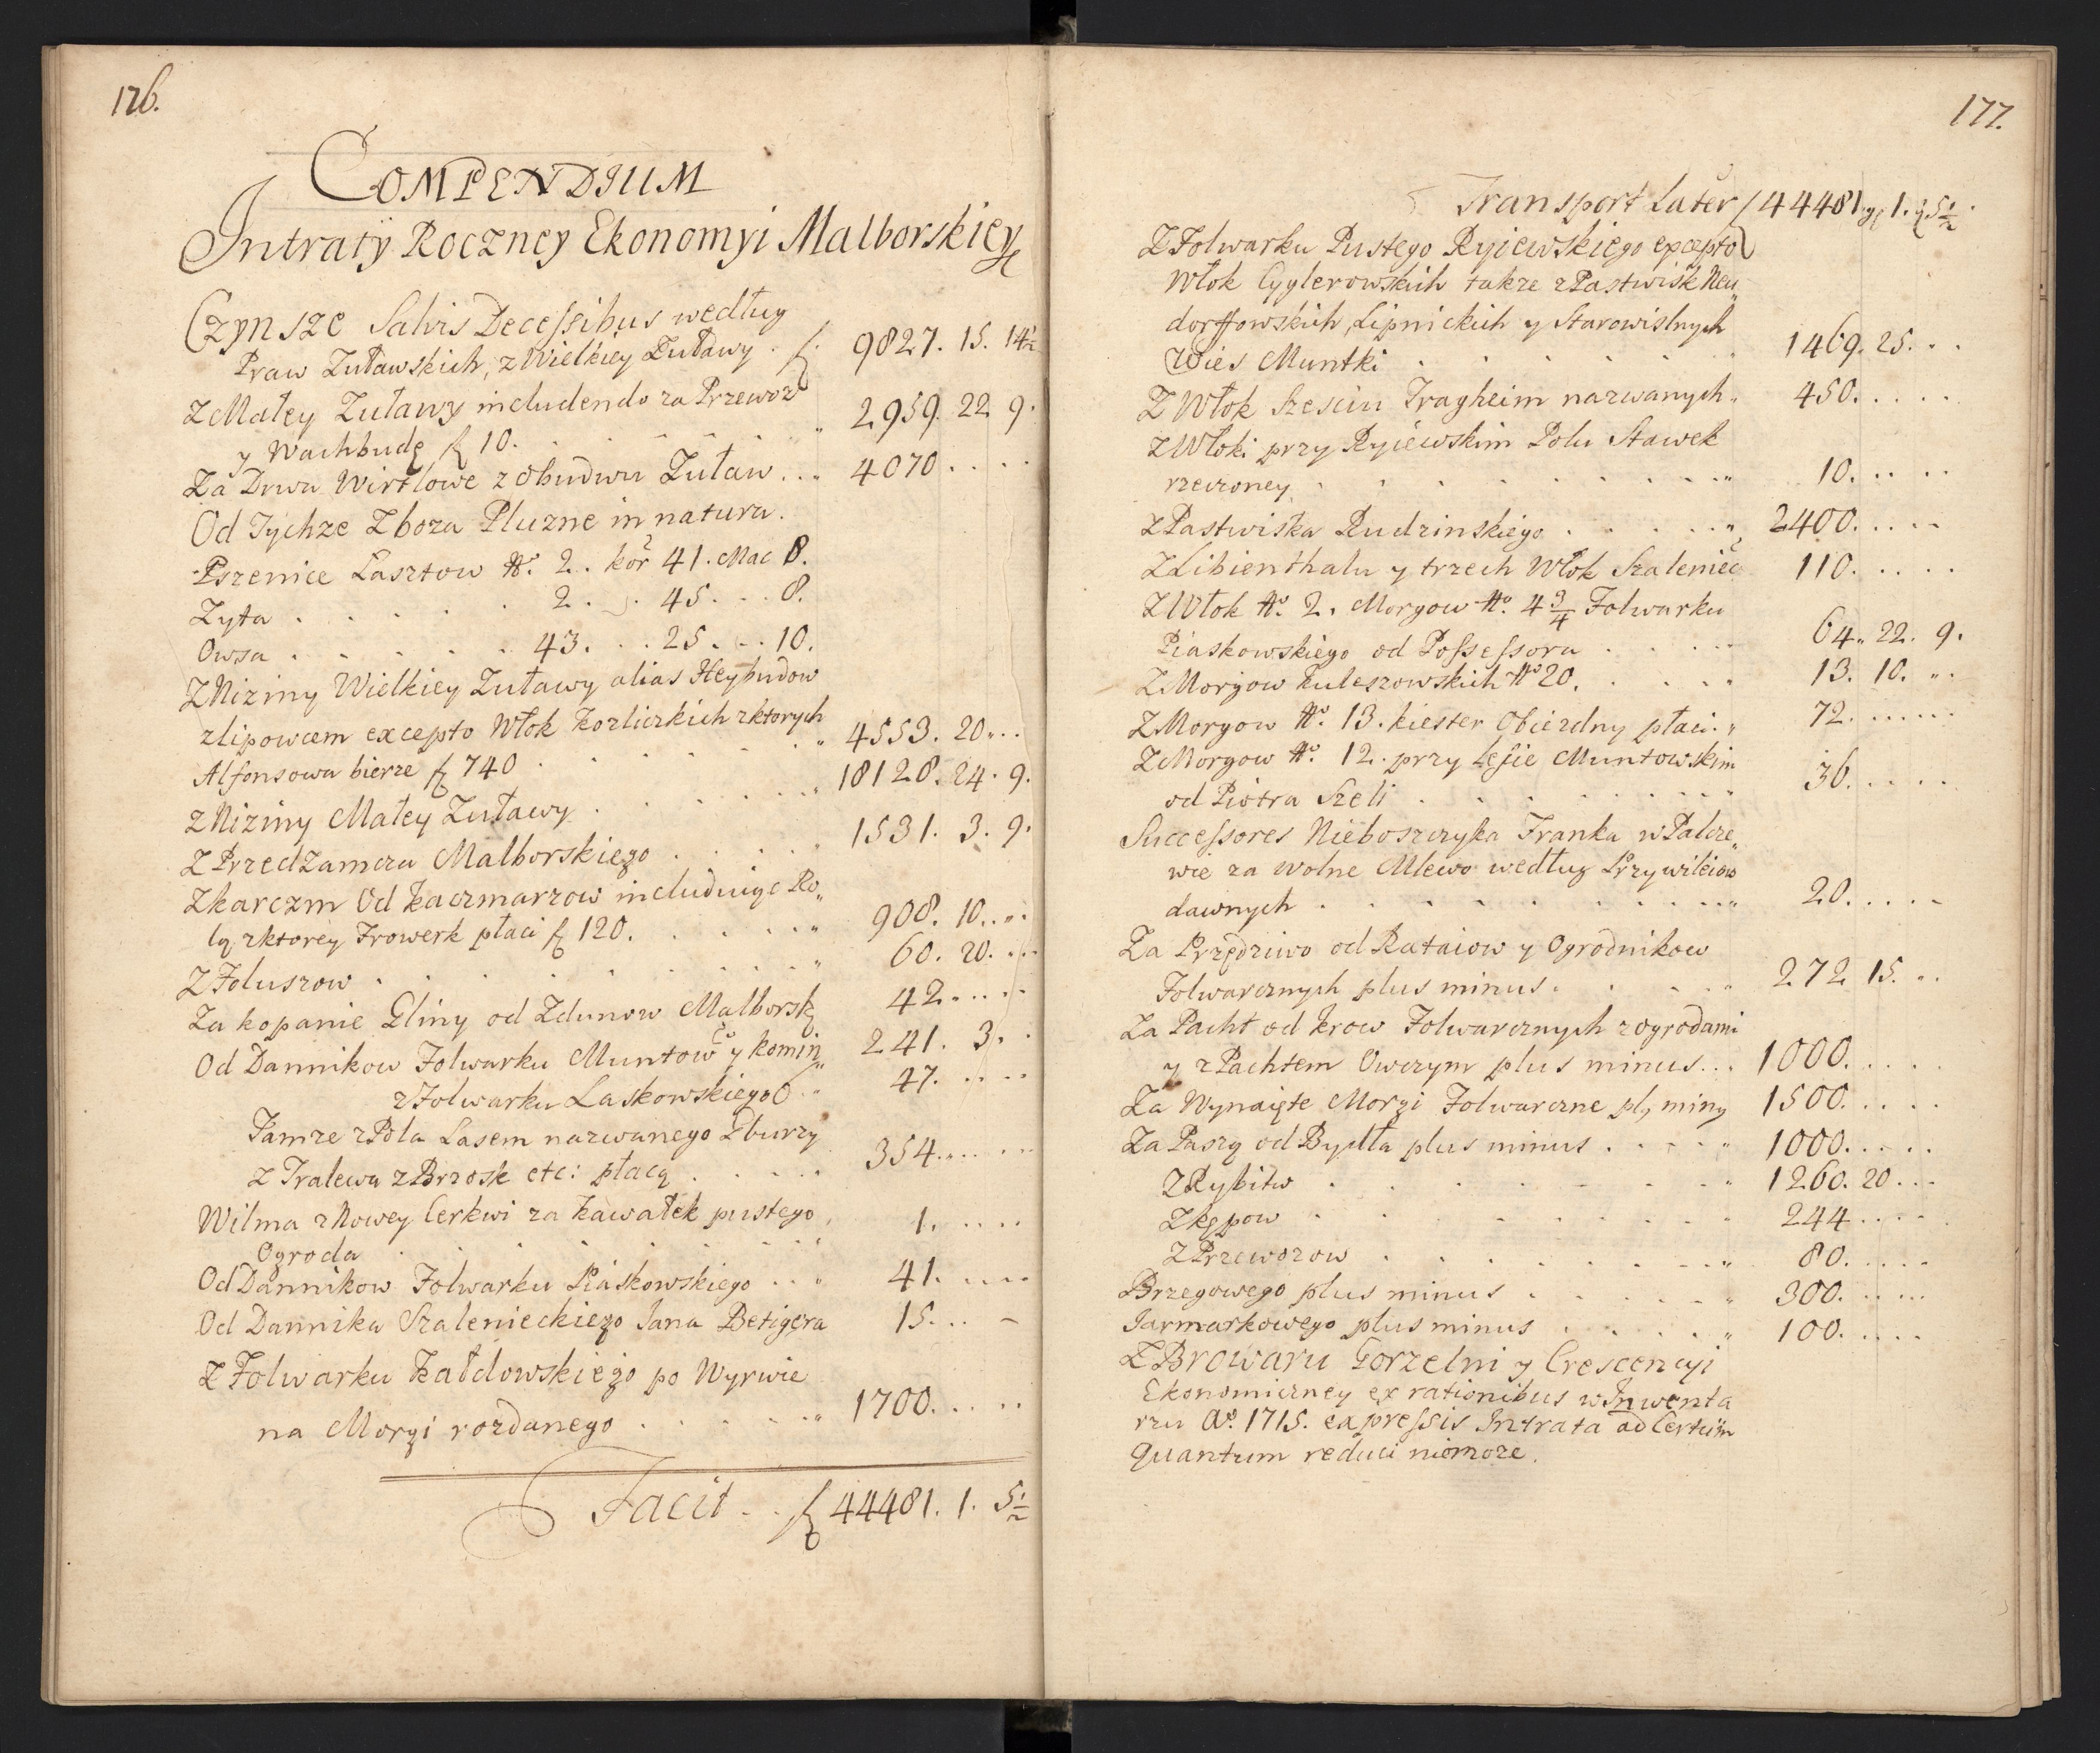 176.
COMPENDIUM
Intraty Roczney Ekonomyi Malborskiey
Czynsze Salvis Decessibus według
Praw Zuławskich, z Wielkiey Zuławy . f. 9827. 15. 14½
Z Małey Zuławy includendo za Przewoz
y Wachbudę f 10. . . . . . „ 2959. 22 9.
Za Drwa Wirtlowe z obudwu Zuław . . „ 4070 . . . .
Od Tychze Zboza Pluzne in natura.
Pszenice Lasztow No. 2. kor 41. Mac 8.
Zyta . . . . . 2 . . 45 . . . 8.
Owsa . . . . . 43. . . 25 . . . 10.
Z Niziny Wielkiey Zuławy alias Heybudow
z lipowcem excepto Włok Kozliczkich z ktorych
Alfonsowa bierze f 740 . . . . . . „ 4553. 20 „ . .
z Niziny Małey Zuławy . . . . . . „ 18128. 24. 9.
Z Przedzamcza Malborskiego . . . . „ 1531. 3. 9.
Z karczm Od Kaczmarzow includuiąc Ro„
lą z ktorey Frowerk płaci f 120. . . . . . „ 908. 10. . „ .
Z Foluszow . . . . . . . . „ 60. 20. . . .
Za kopanie Gliny od Zdunow Malborsk 42. . . . .
Od Dannikow Folwarku Muntow y komin„ 241. 3. .
z Folwarku Laskowskiego . „ 47. . . . .
Tamze z Pola Lasem nazwanego Gburzy
z Tralewa z Brzosk etc: płacą . . . . . 354. . . . .
Wilma z Nowey Cerkwi za kawałek pustego
Ogroda . . . . . . . . 1. . . . .
Od Dannikow Folwarku Piaskowskiego . . „ 41. . . . .
Od Dannika Szalenieckiego Jana Betigera 15. . . –
Z Folwarku Kałdowskiego po Wyrwie
na Morgi rozdanego . . . . . . „ 1700. . . . .
Facit . . f 44481. 1. 5½
177.
Transport Later f 44481 gr 1. ₰ 5½
Z Folwarku Pustego Ryiewskiego excepto
Włok Cyglerowskich takze z Pastwisk Neu„
dorffowskich, Lipnickich y Starowislnych
Wies Muntki . . . . . . . 1469. 25. . .
Z Włok szesciu Tragheim nazwanych „ 450. . . . .
z Włoki przy Ryiewskim Polu Stawek
rzeczoney . . . . . . . . . „ 10. . . . .
z Pastwiska Rudzinskiego . . . . . „ 2400. . . . .
Z Libienthalu y trzech Włok Szaleniec 110. . . . .
Z Włok No. 2. Morgow No. 4¾ Folwarku
Piaskowskiego od Possessora . . . . . 64. 22. 9.
Z Morgow Kuleszowskich No 20. . . . . „ 13. 10. „ .
Z Morgow No. 13. kiester Obiezdny płaci. „ 72. . . . . .
Z Morgow No. 12. przy Lesie Muntowskim
od Piotra Szeli . . . . . . . . „ 36. . . . .
Successores Nieboszczyka Franka w Palcze„
wie za wolne Mlewo według Przywileiow
dawnych . . . . . . . . . „ 20. . . . .
Za Przędziwo od Rataiow y Ogrodnikow
Folwarcznych plus minus . . . . . „ 272 15. . .
Za Pacht od krow Folwarcznych z ogrodami
y z Pachtem Owczym plus minus . . . 1000. . . . .
Za Wynaięte Morgi Folwarczne pl, miny 1500. . . . .
Za Paszą od Bydła plus minus . . . . „ 1000. . . . .
Z Rybitw . . . . . . . „ 1260. 20 . . .
Z kępow . . . . . . . . 244 . . . .
Z Przewozow . . . . . . . „ 80. . . . .
Brzegowego plus minus . . . . . „ 300. . . . .
Jarmarkowego plus minus . . . . . „ 100. . . . .
Z Browaru Gorzelni y Crescencyi
Ekonomiczney ex rationibus w Inwenta
rzu Ao. 1715. expressis Intrata ad Certum
quantum reduci niemoze.